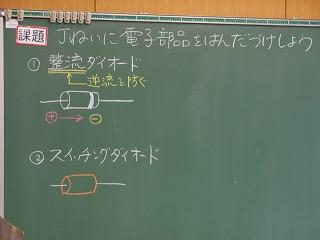 課題 Jねいに電子部品をはんだづけしよう
① 整流ダイオード
逆流を防ぐ
+ → -
② スイッチングダイオード